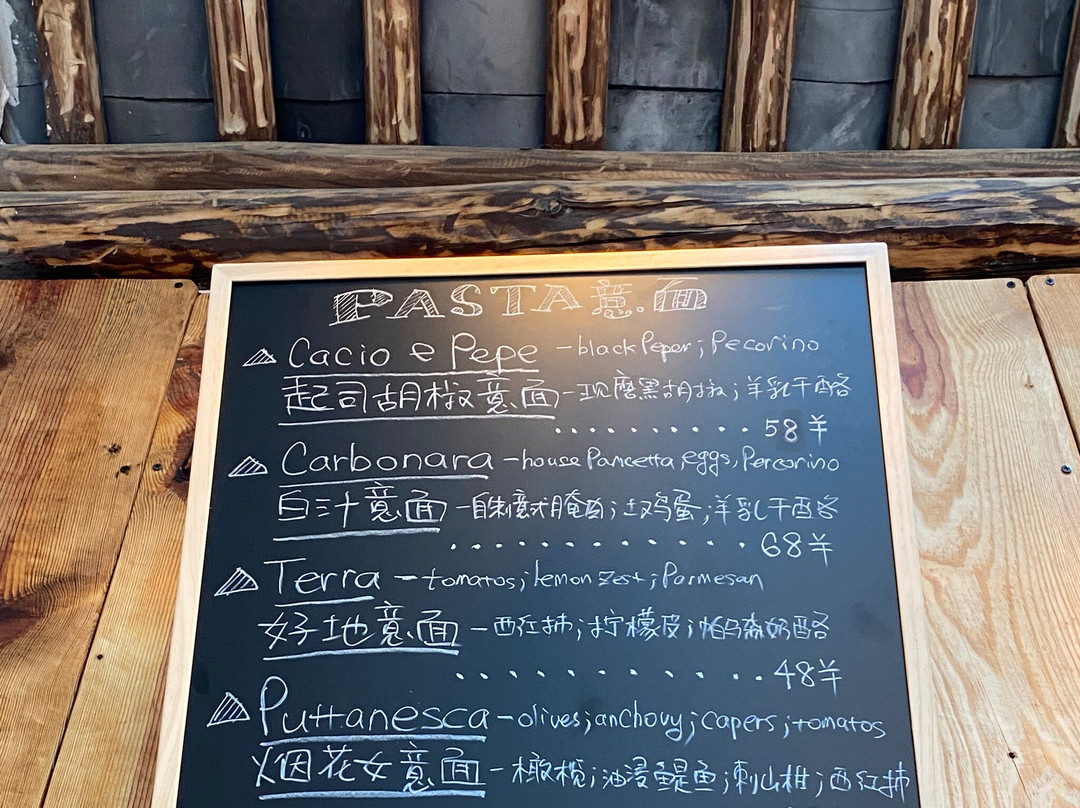 PASTA意面
Cacio e Pepe -black Peper; Pecorino
起司胡椒意面-现磨黑胡椒;羊乳干酪
..........58羊
Carbonara -house Pancetta, eggs, Percorino
白汁意面-自制意式腌肉;土鸡蛋;羊乳干酪
............68羊
Terra -tomatos; lemon zest; Parmesan
好地意面-西红柿;柠檬皮;帕马森奶酪
............48羊
Puttanesca -olives; anchovy; capers; tomatos
烟花女意面-橄榄;油浸鳀鱼;刺山柑;西红柿